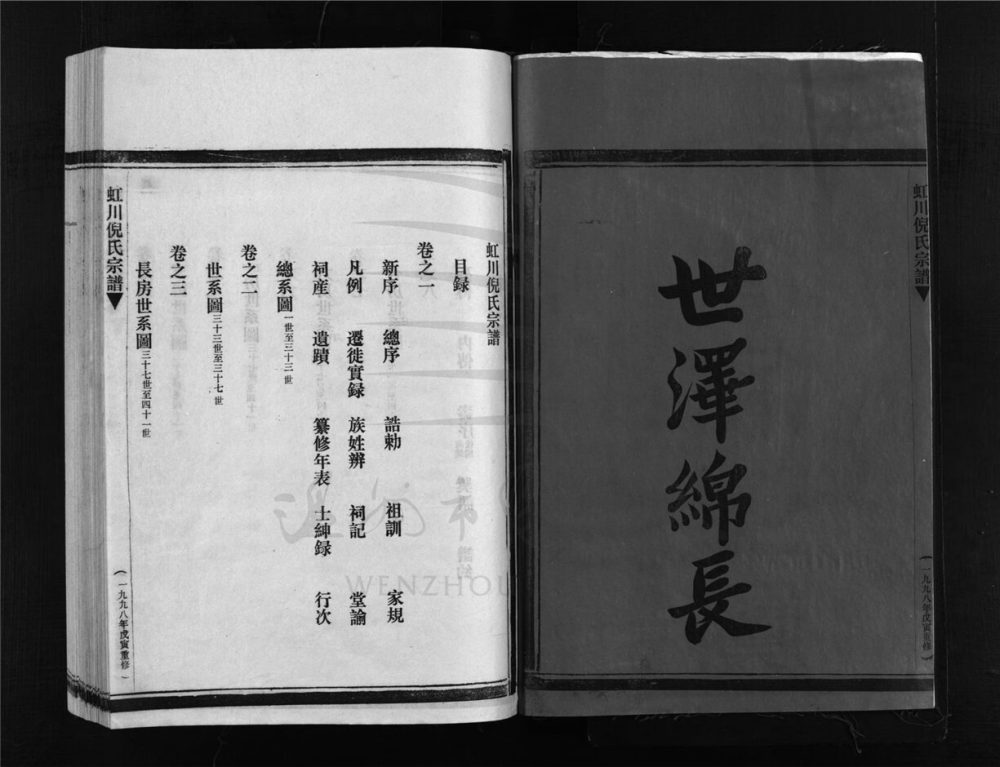 虹川倪氏宗譜
世澤綿長
(一九九八年戊寅重修)
虹川倪氏宗譜
目録
卷之一
新序 總序 誥勅 祖訓 家規
凡例 遷徙實録 族姓辨 祠記 堂諭
祠産 遺蹟 纂修年表 士紳録 行次
總系圖一世至三十三世
卷之二
世系圖三十三世至三十七世
卷之三
長房世系圖三十七世至四十一世
虹川倪氏宗譜
(一九九八年戊寅重修)
WENZHOU